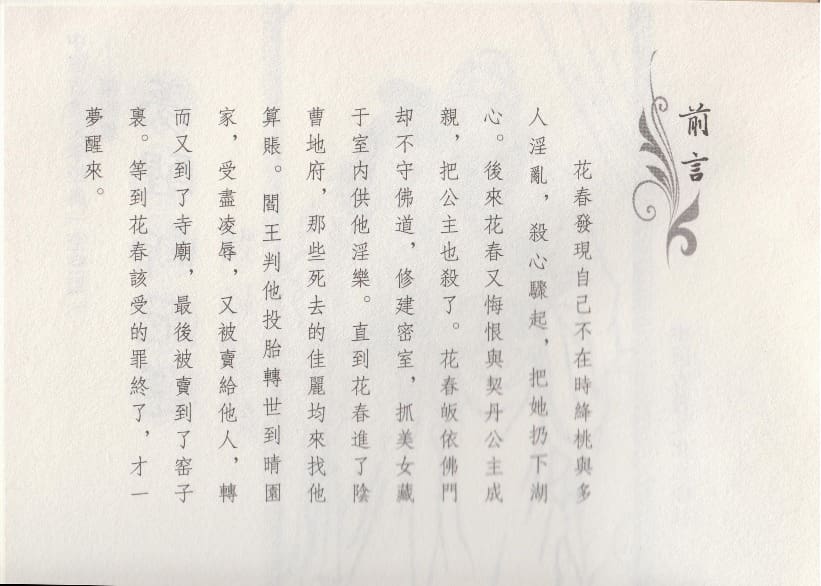 前言
花春發現自己不在時絳桃與多
人淫亂，殺心驟起，把她扔下湖
心。後來花春又悔恨與契丹公主成
親，把公主也殺了。花春皈依佛門
却不守佛道，修建密室，抓美女藏
于室内供他淫樂。直到花春進了陰
曹地府，那些死去的佳麗均來找他
算賬。閻王判他投胎轉世到晴園
家，受盡凌辱，又被賣給他人，轉
而又到了寺廟，最後被賣到了窑子
裏。等到花春該受的罪終了，才一
夢醒來。